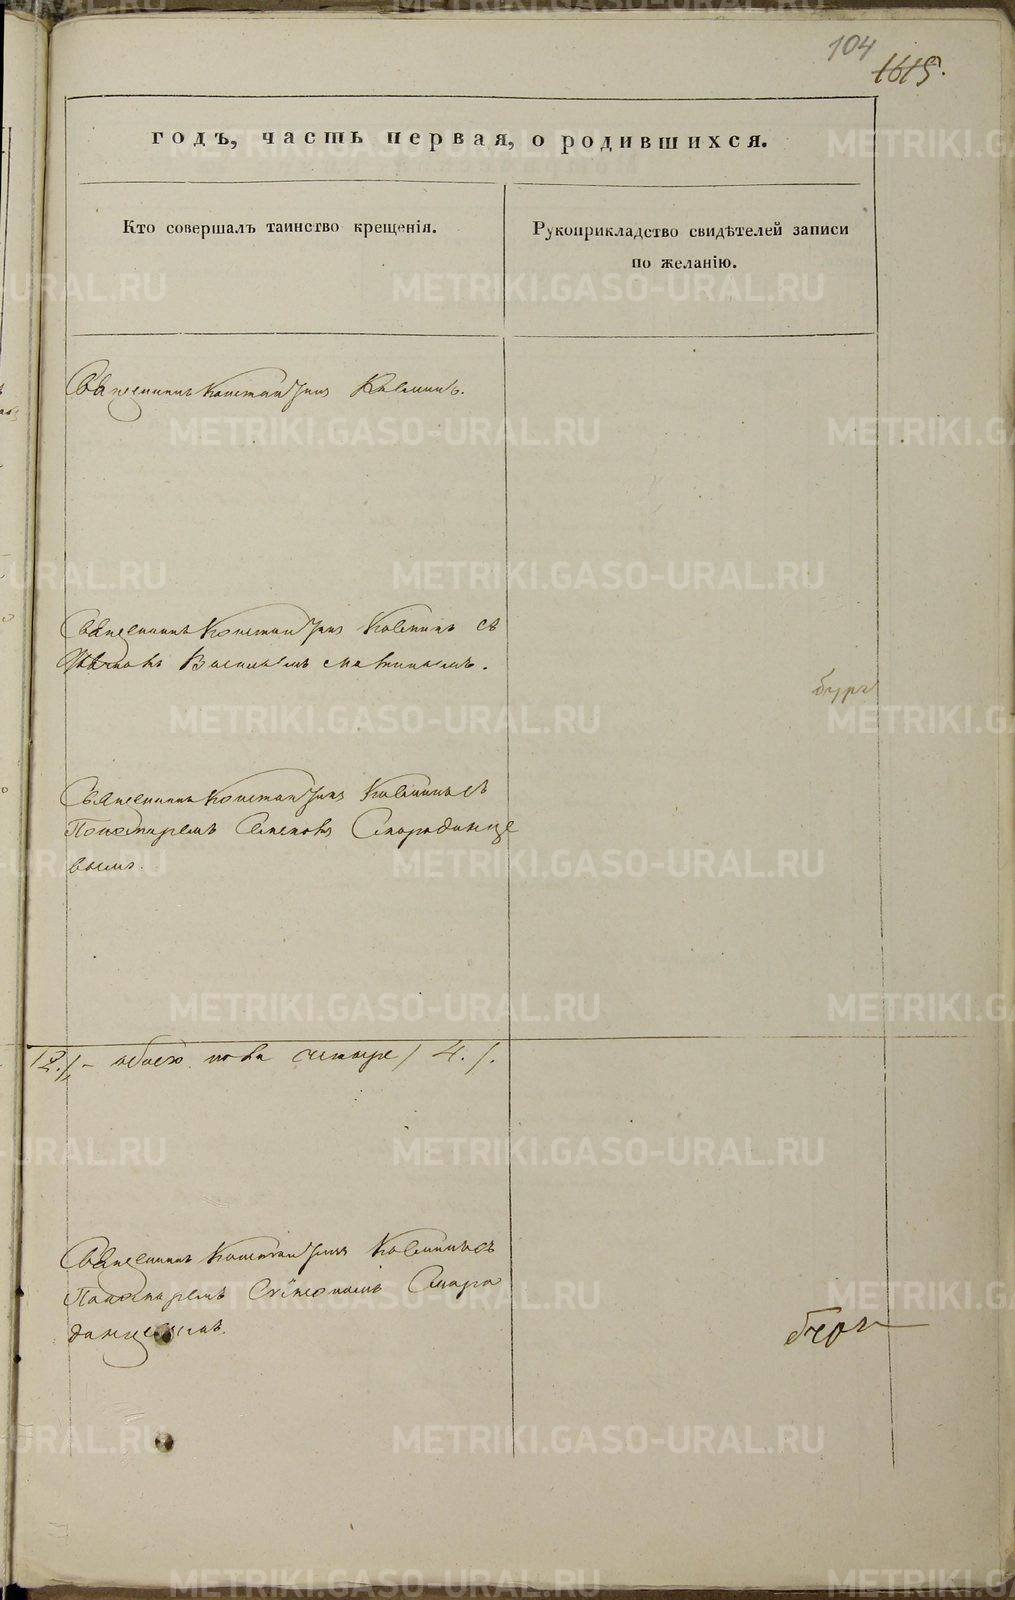 104
1615.
годъ, часть первая, о родившихся.
Кто совершалъ таинство крещенія.
Рукоприкладство свидѣтелей записи
по желанію.
Священникъ Константинъ
Священникъ Константинъ съ
Василіемъ
Священникъ Константинъ съ
Пономаремъ Смородинце
вымъ.
2./, - обоего пола четыре / 4. /.
Священникъ Константинъ съ
Пономаремъ Сѵмеономъ Сморо
динцевымъ.
METRIKI.GASO-URAL.RU